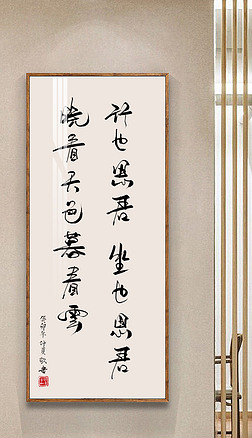 行也思君 坐也思君
晓看天色暮看雲